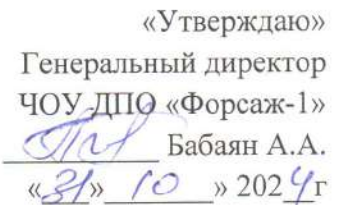 «Утверждаю»
Генеральный директор
ЧОУ ДПО «Форсаж-1»
Бабаян А.А.
«31» 10 » 2024г